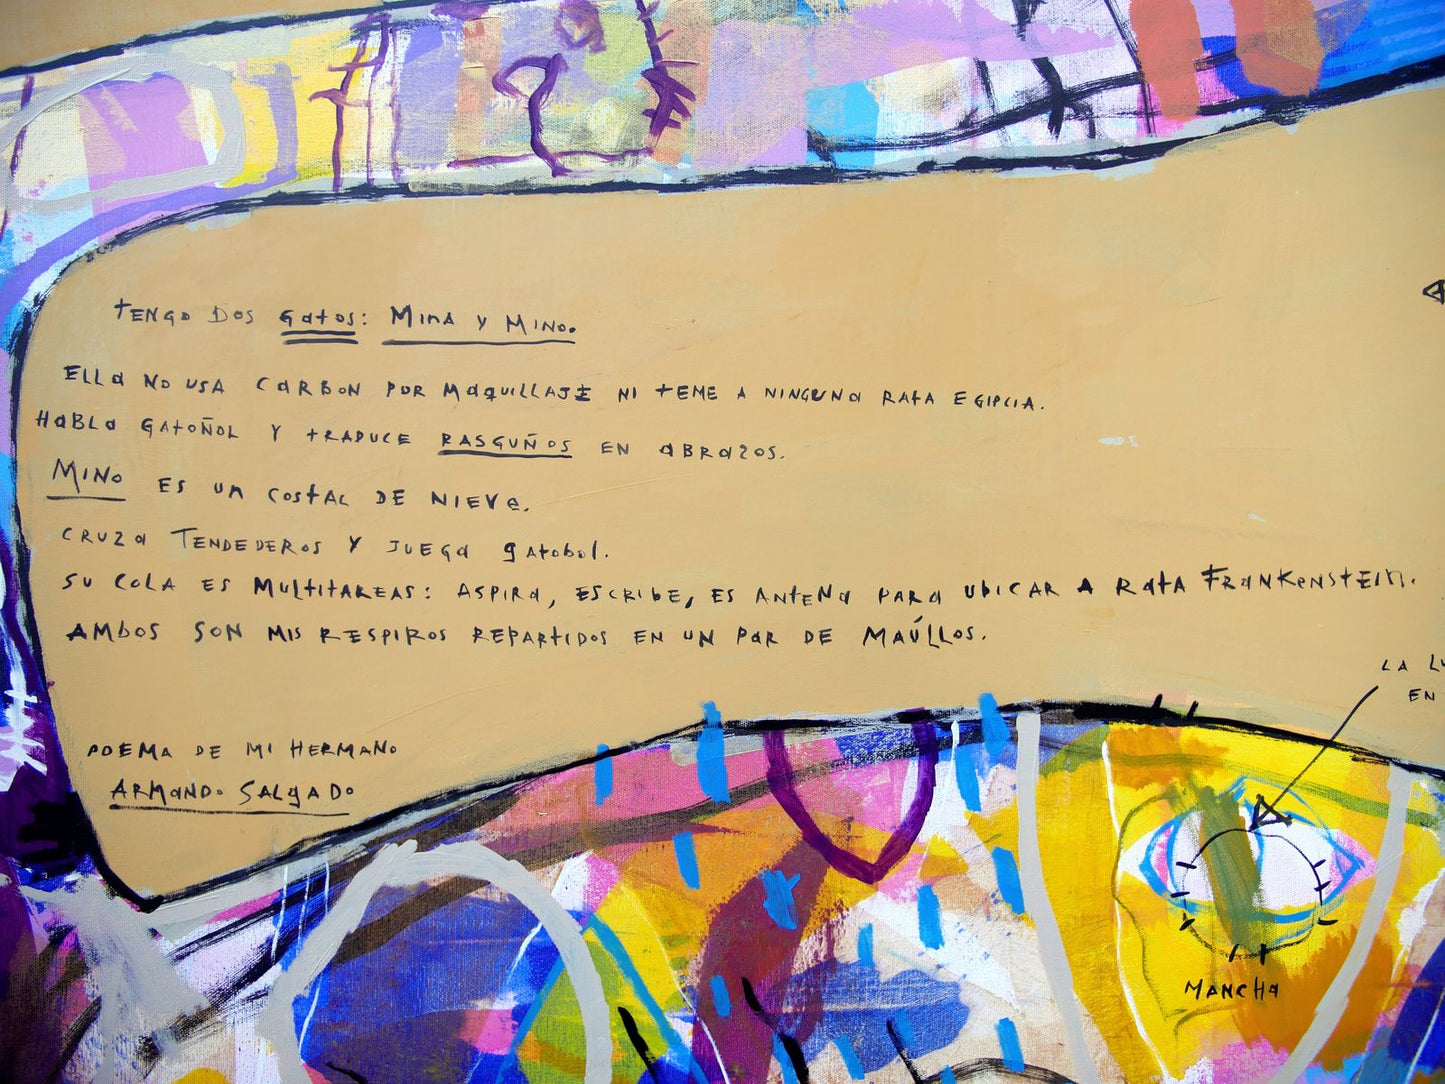 TENGO DOS GATOS: MINA Y MINO.
ELLA NO USA CARBON POR MAQUILLAJE NI TEME A NINGUNA RATA EGIPCIA.
HABLA GATOÑOL Y TRADUCE RASGUÑOS EN ABRAZOS.
MINO ES UN COSTAL DE NIEVE.
CRUZA TENDEDEROS Y JUEGA GATOBOL.
SU COLA ES MULTITAREAS: ASPIRA, ESCRIBE, ES ANTENA PARA UBICAR A RATA FRANKENSTEIN.
AMBOS SON MIS RESPIROS REPARTIDOS EN UN PAR DE MAÚLLOS.
LA
EN
POEMA DE MI HERMANO
ARMANDO SALGADO
MANCHA